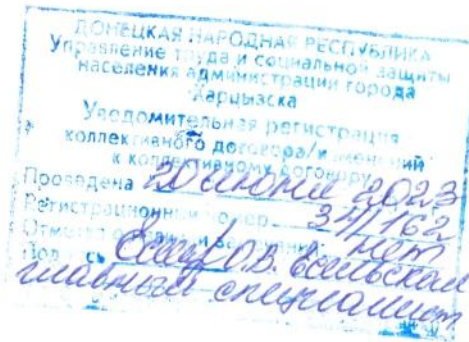 ДОНЕЦКАЯ НАРОДНАЯ РЕСПУБЛИКА
Управление труда и социальной защиты
населения администрации города
Харцызска
Уведомительная регистрация
коллективного договора/изменений
к коллективному договору
Проведена 20 июня 2023
Регистрационный номер 34/162
Отметка о наличии замечаний нет
Подпись О.В. Есельская
главный специалист